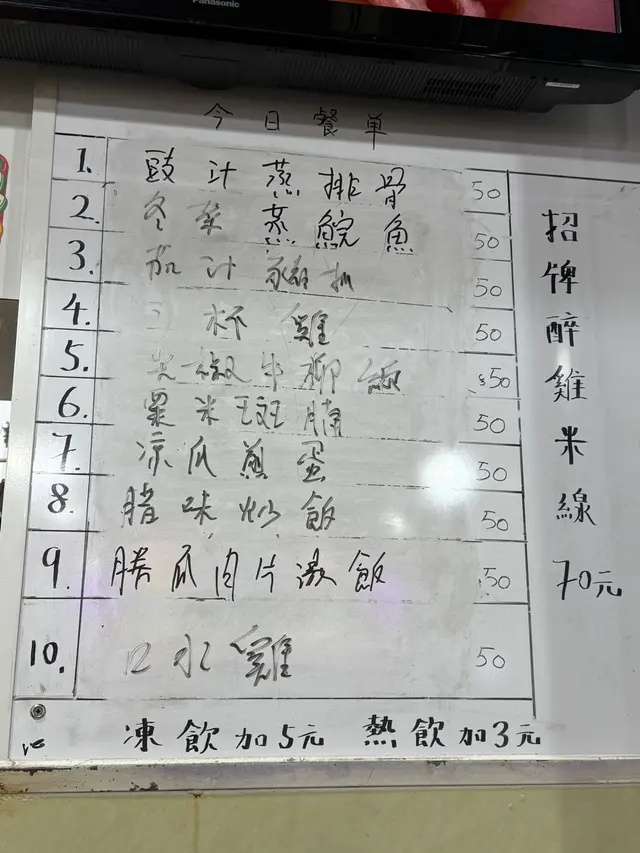 Panasonic
今日餐单
1. 豉汁蒸排骨 50
2. 冬菜蒸鯇魚 50
3. 茄汁豬扒 50
4. 三杯雞 50
5. 尖椒牛柳絲 50
6. 粟米斑腩 50
7. 凉瓜煎蛋 50
8. 腊味炒飯 50
9. 勝瓜肉片湯飯 50
10. 口水雞 50
招牌醉雞米線 70元
凍飲加5元 熱飲加3元